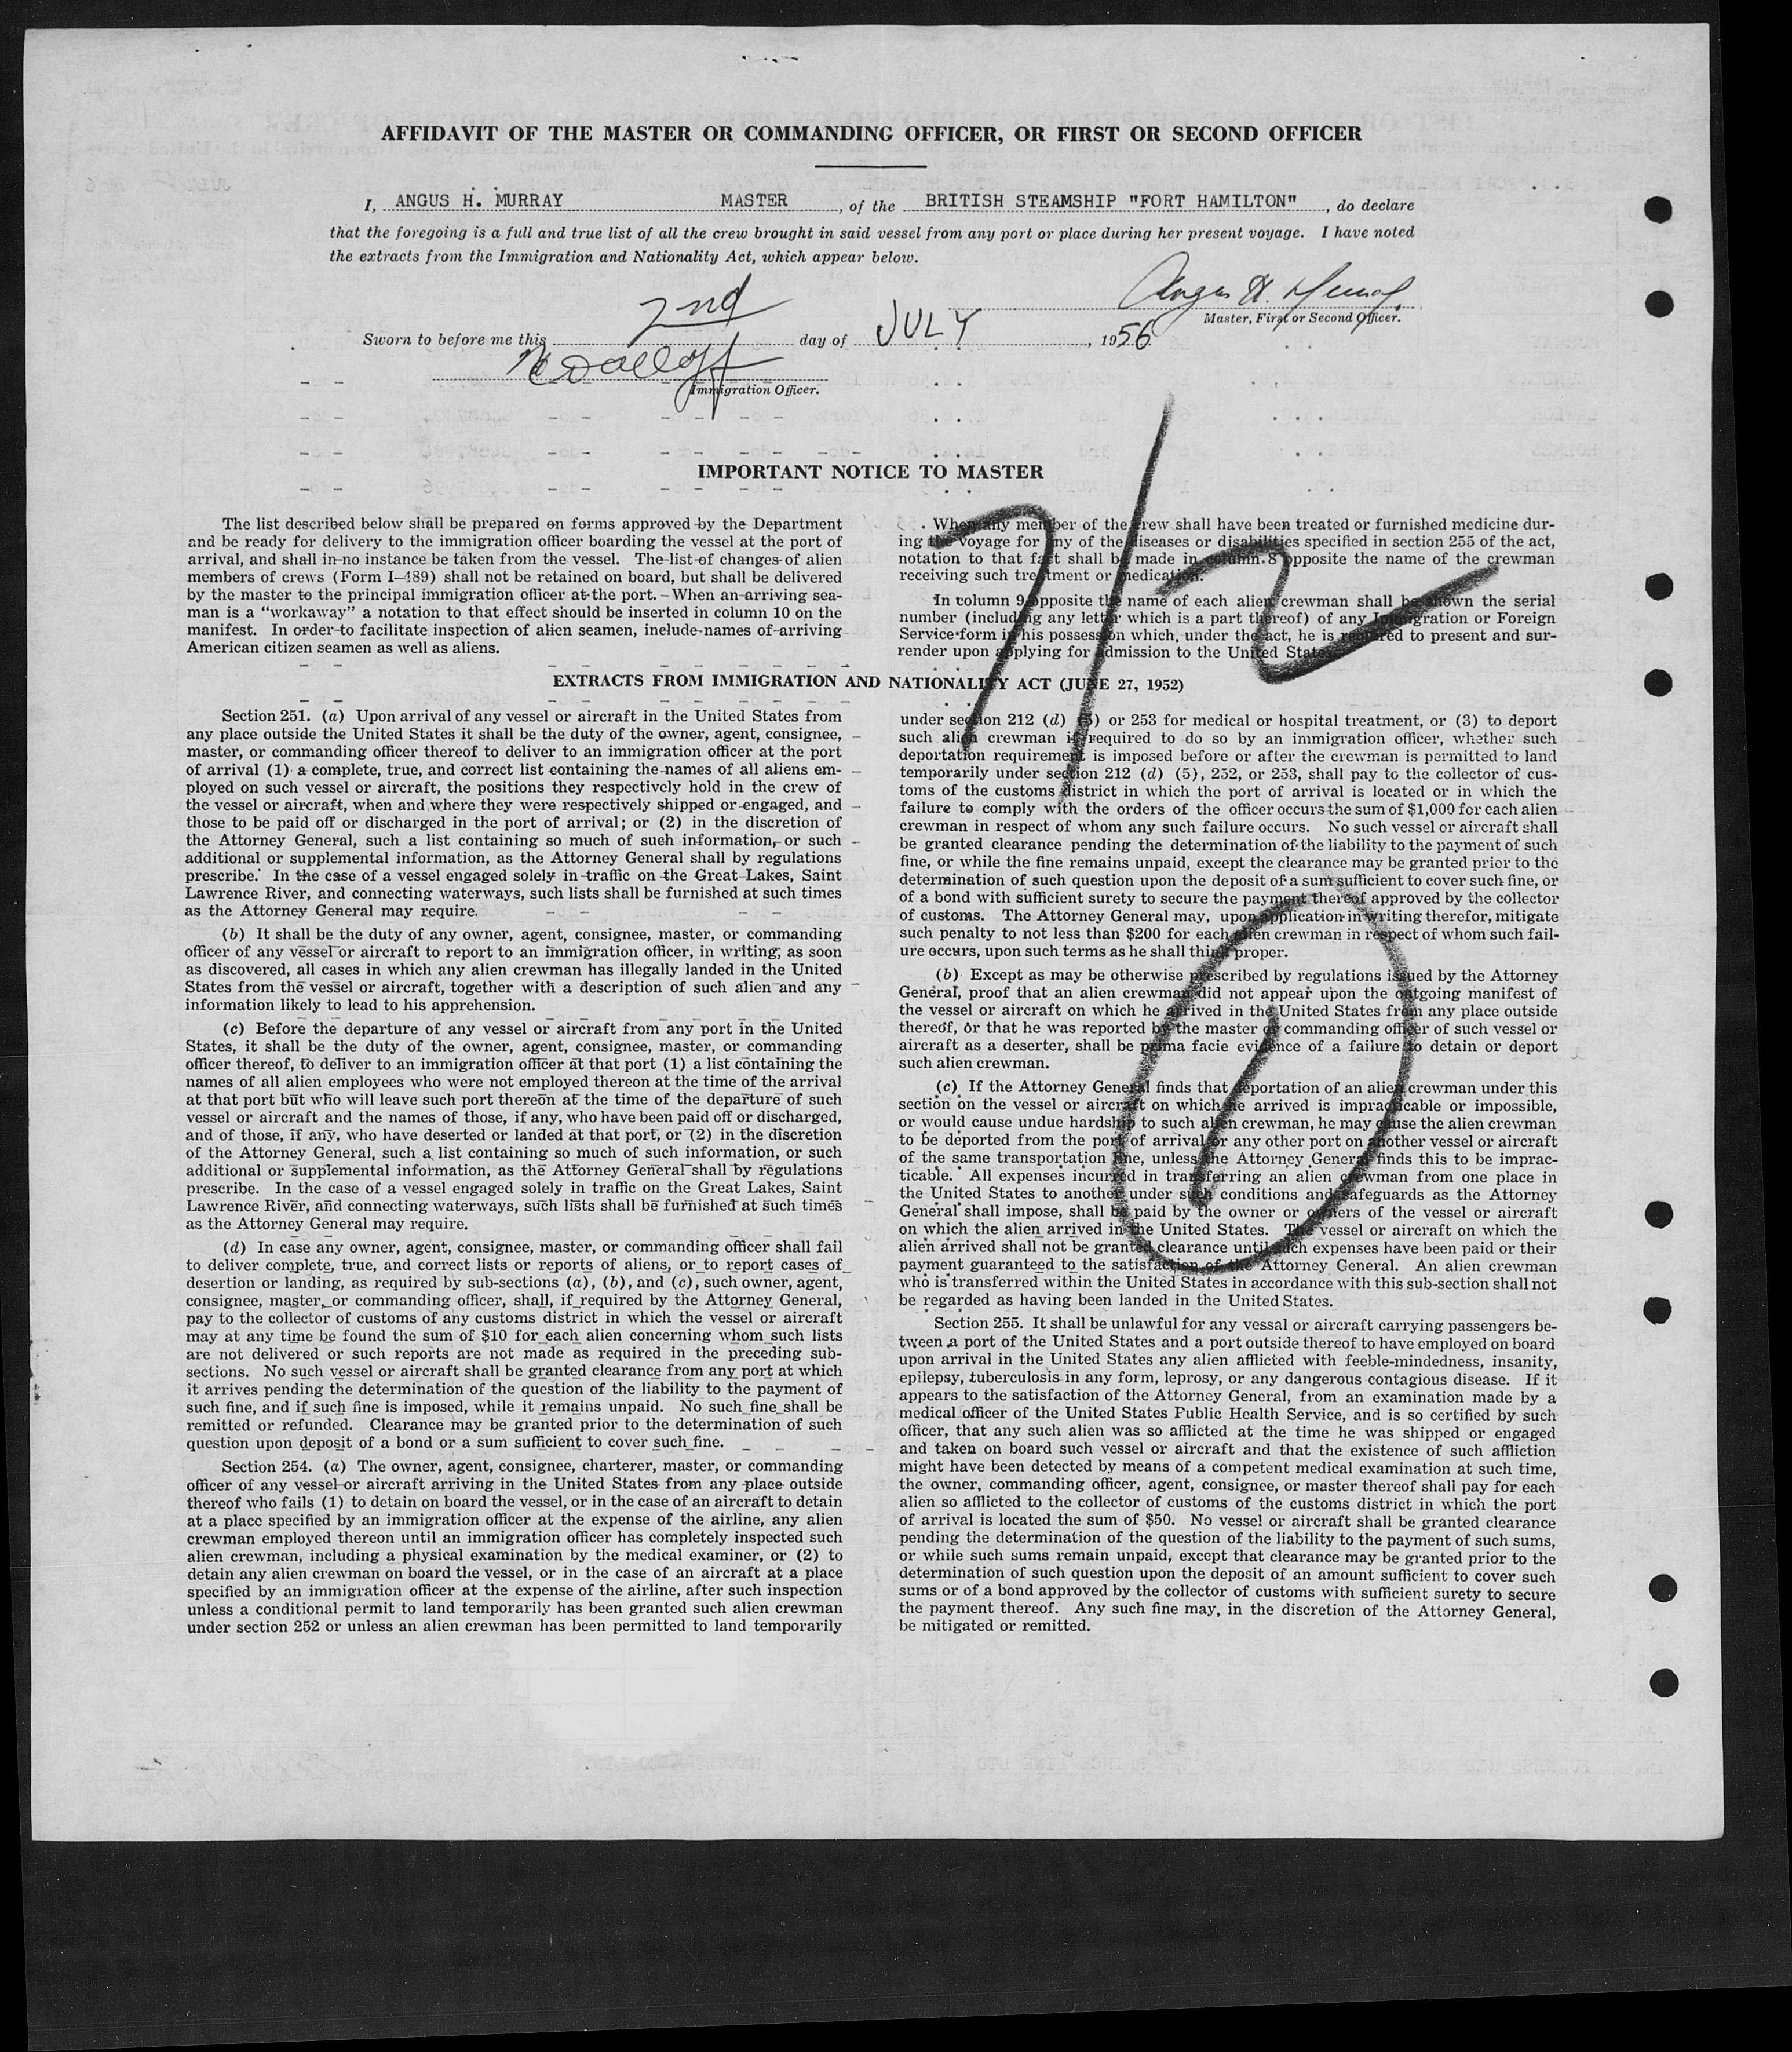 AFFIDAVIT OF THE MASTER OR COMMANDING OFFICER, OR FIRST OR SECOND OFFICER
I, ANGUS H. MURRAY MASTER, of the BRITISH STEAMSHIP "FORT HAMILTON", do declare
that the foregoing is a full and true list of all the crew brought in said vessel from any port or place during her present voyage. I have noted
the extracts from the Immigration and Nationality Act, which appear below.
Angus H. Murray
Master, First or Second Officer.
Sworn to before me this 2nd day of JULY, 1956
Immigration Officer.
IMPORTANT NOTICE TO MASTER
The list described below shall be prepared on forms approved by the Department
and be ready for delivery to the immigration officer boarding the vessel at the port of
arrival, and shall in no instance be taken from the vessel. The list of changes of alien
members of crews (Form I-489) shall not be retained on board, but shall be delivered
by the master to the principal immigration officer at the port. When an arriving sea-
man is a "workaway" a notation to that effect should be inserted in column 10 on the
manifest. In order to facilitate inspection of alien seamen, include names of arriving
American citizen seamen as well as aliens.
When any member of the crew shall have been treated or furnished medicine dur-
ing the voyage for any of the diseases or disabilities specified in section 255 of the act,
notation to that fact shall be made in column 8 opposite the name of the crewman
receiving such treatment or medication.
In column 9 opposite the name of each alien crewman shall be shown the serial
number (including any letter which is a part thereof) of any Immigration or Foreign
Service form in his possession which, under the act, he is required to present and sur-
render upon applying for admission to the United States.
7/2
EXTRACTS FROM IMMIGRATION AND NATIONALITY ACT (JUNE 27, 1952)
Section 251. (a) Upon arrival of any vessel or aircraft in the United States from
any place outside the United States it shall be the duty of the owner, agent, consignee,
master, or commanding officer thereof to deliver to an immigration officer at the port
of arrival (1) a complete, true, and correct list containing the names of all aliens em-
ployed on such vessel or aircraft, the positions they respectively hold in the crew of
the vessel or aircraft, when and where they were respectively shipped or engaged, and
those to be paid off or discharged in the port of arrival; or (2) in the discretion of
the Attorney General, such a list containing so much of such information, or such
additional or supplemental information, as the Attorney General shall by regulations
prescribe. In the case of a vessel engaged solely in traffic on the Great Lakes, Saint
Lawrence River, and connecting waterways, such lists shall be furnished at such times
as the Attorney General may require.
(b) It shall be the duty of any owner, agent, consignee, master, or commanding
officer of any vessel or aircraft to report to an immigration officer, in writing, as soon
as discovered, all cases in which any alien crewman has illegally landed in the United
States from the vessel or aircraft, together with a description of such alien and any
information likely to lead to his apprehension.
(c) Before the departure of any vessel or aircraft from any port in the United
States, it shall be the duty of the owner, agent, consignee, master, or commanding
officer thereof, to deliver to an immigration officer at that port (1) a list containing the
names of all alien employees who were not employed thereon at the time of the arrival
at that port but who will leave such port thereon at the time of the departure of such
vessel or aircraft and the names of those, if any, who have been paid off or discharged,
and of those, if any, who have deserted or landed at that port, or (2) in the discretion
of the Attorney General, such a list containing so much of such information, or such
additional or supplemental information, as the Attorney General shall by regulations
prescribe. In the case of a vessel engaged solely in traffic on the Great Lakes, Saint
Lawrence River, and connecting waterways, such lists shall be furnished at such times
as the Attorney General may require.
(d) In case any owner, agent, consignee, master, or commanding officer shall fail
to deliver complete, true, and correct lists or reports of aliens, or to report cases of
desertion or landing, as required by sub-sections (a), (b), and (c), such owner, agent,
consignee, master, or commanding officer, shall, if required by the Attorney General,
pay to the collector of customs of any customs district in which the vessel or aircraft
may at any time be found the sum of $10 for each alien concerning whom such lists
are not delivered or such reports are not made as required in the preceding sub-
sections. No such vessel or aircraft shall be granted clearance from any port at which
it arrives pending the determination of the question of the liability to the payment of
such fine, and if such fine is imposed, while it remains unpaid. No such fine shall be
remitted or refunded. Clearance may be granted prior to the determination of such
question upon deposit of a bond or a sum sufficient to cover such fine.
Section 254. (a) The owner, agent, consignee, charterer, master, or commanding
officer of any vessel or aircraft arriving in the United States from any place outside
thereof who fails (1) to detain on board the vessel, or in the case of an aircraft to detain
at a place specified by an immigration officer at the expense of the airline, any alien
crewman employed thereon until an immigration officer has completely inspected such
alien crewman, including a physical examination by the medical examiner, or (2) to
detain any alien crewman on board the vessel, or in the case of an aircraft at a place
specified by an immigration officer at the expense of the airline, after such inspection
unless a conditional permit to land temporarily has been granted such alien crewman
under section 252 or unless an alien crewman has been permitted to land temporarily
under section 212 (d) (5) or 253 for medical or hospital treatment, or (3) to deport
such alien crewman if required to do so by an immigration officer, whether such
deportation requirement is imposed before or after the crewman is permitted to land
temporarily under section 212 (d) (5), 252, or 253, shall pay to the collector of cus-
toms of the customs district in which the port of arrival is located or in which the
failure to comply with the orders of the officer occurs the sum of $1,000 for each alien
crewman in respect of whom any such failure occurs. No such vessel or aircraft shall
be granted clearance pending the determination of the liability to the payment of such
fine, or while the fine remains unpaid, except the clearance may be granted prior to the
determination of such question upon the deposit of a sum sufficient to cover such fine, or
of a bond with sufficient surety to secure the payment thereof approved by the collector
of customs. The Attorney General may, upon application in writing therefor, mitigate
such penalty to not less than $200 for each alien crewman in respect of whom such fail-
ure occurs, upon such terms as he shall think proper.
(b) Except as may be otherwise prescribed by regulations issued by the Attorney
General, proof that an alien crewman did not appear upon the outgoing manifest of
the vessel or aircraft on which he arrived in the United States from any place outside
thereof, or that he was reported by the master or commanding officer of such vessel or
aircraft as a deserter, shall be prima facie evidence of a failure to detain or deport
such alien crewman.
(c) If the Attorney General finds that deportation of an alien crewman under this
section on the vessel or aircraft on which he arrived is impracticable or impossible,
or would cause undue hardship to such alien crewman, he may cause the alien crewman
to be deported from the port of arrival or any other port on another vessel or aircraft
of the same transportation line, unless the Attorney General finds this to be imprac-
ticable. All expenses incurred in transferring an alien crewman from one place in
the United States to another under such conditions and safeguards as the Attorney
General shall impose, shall be paid by the owner or owners of the vessel or aircraft
on which the alien arrived in the United States. The vessel or aircraft on which the
alien arrived shall not be granted clearance until such expenses have been paid or their
payment guaranteed to the satisfaction of the Attorney General. An alien crewman
who is transferred within the United States in accordance with this sub-section shall not
be regarded as having been landed in the United States.
1
Section 255. It shall be unlawful for any vessal or aircraft carrying passengers be-
tween a port of the United States and a port outside thereof to have employed on board
upon arrival in the United States any alien afflicted with feeble-mindedness, insanity,
epilepsy, tuberculosis in any form, leprosy, or any dangerous contagious disease. If it
appears to the satisfaction of the Attorney General, from an examination made by a
medical officer of the United States Public Health Service, and is so certified by such
officer, that any such alien was so afflicted at the time he was shipped or engaged
and taken on board such vessel or aircraft and that the existence of such affliction
might have been detected by means of a competent medical examination at such time,
the owner, commanding officer, agent, consignee, or master thereof shall pay for each
alien so afflicted to the collector of customs of the customs district in which the port
of arrival is located the sum of $50. No vessel or aircraft shall be granted clearance
pending the determination of the question of the liability to the payment of such sums,
or while such sums remain unpaid, except that clearance may be granted prior to the
determination of such question upon the deposit of an amount sufficient to cover such
sums or of a bond approved by the collector of customs with sufficient surety to secure
the payment thereof. Any such fine may, in the discretion of the Attorney General,
be mitigated or remitted.